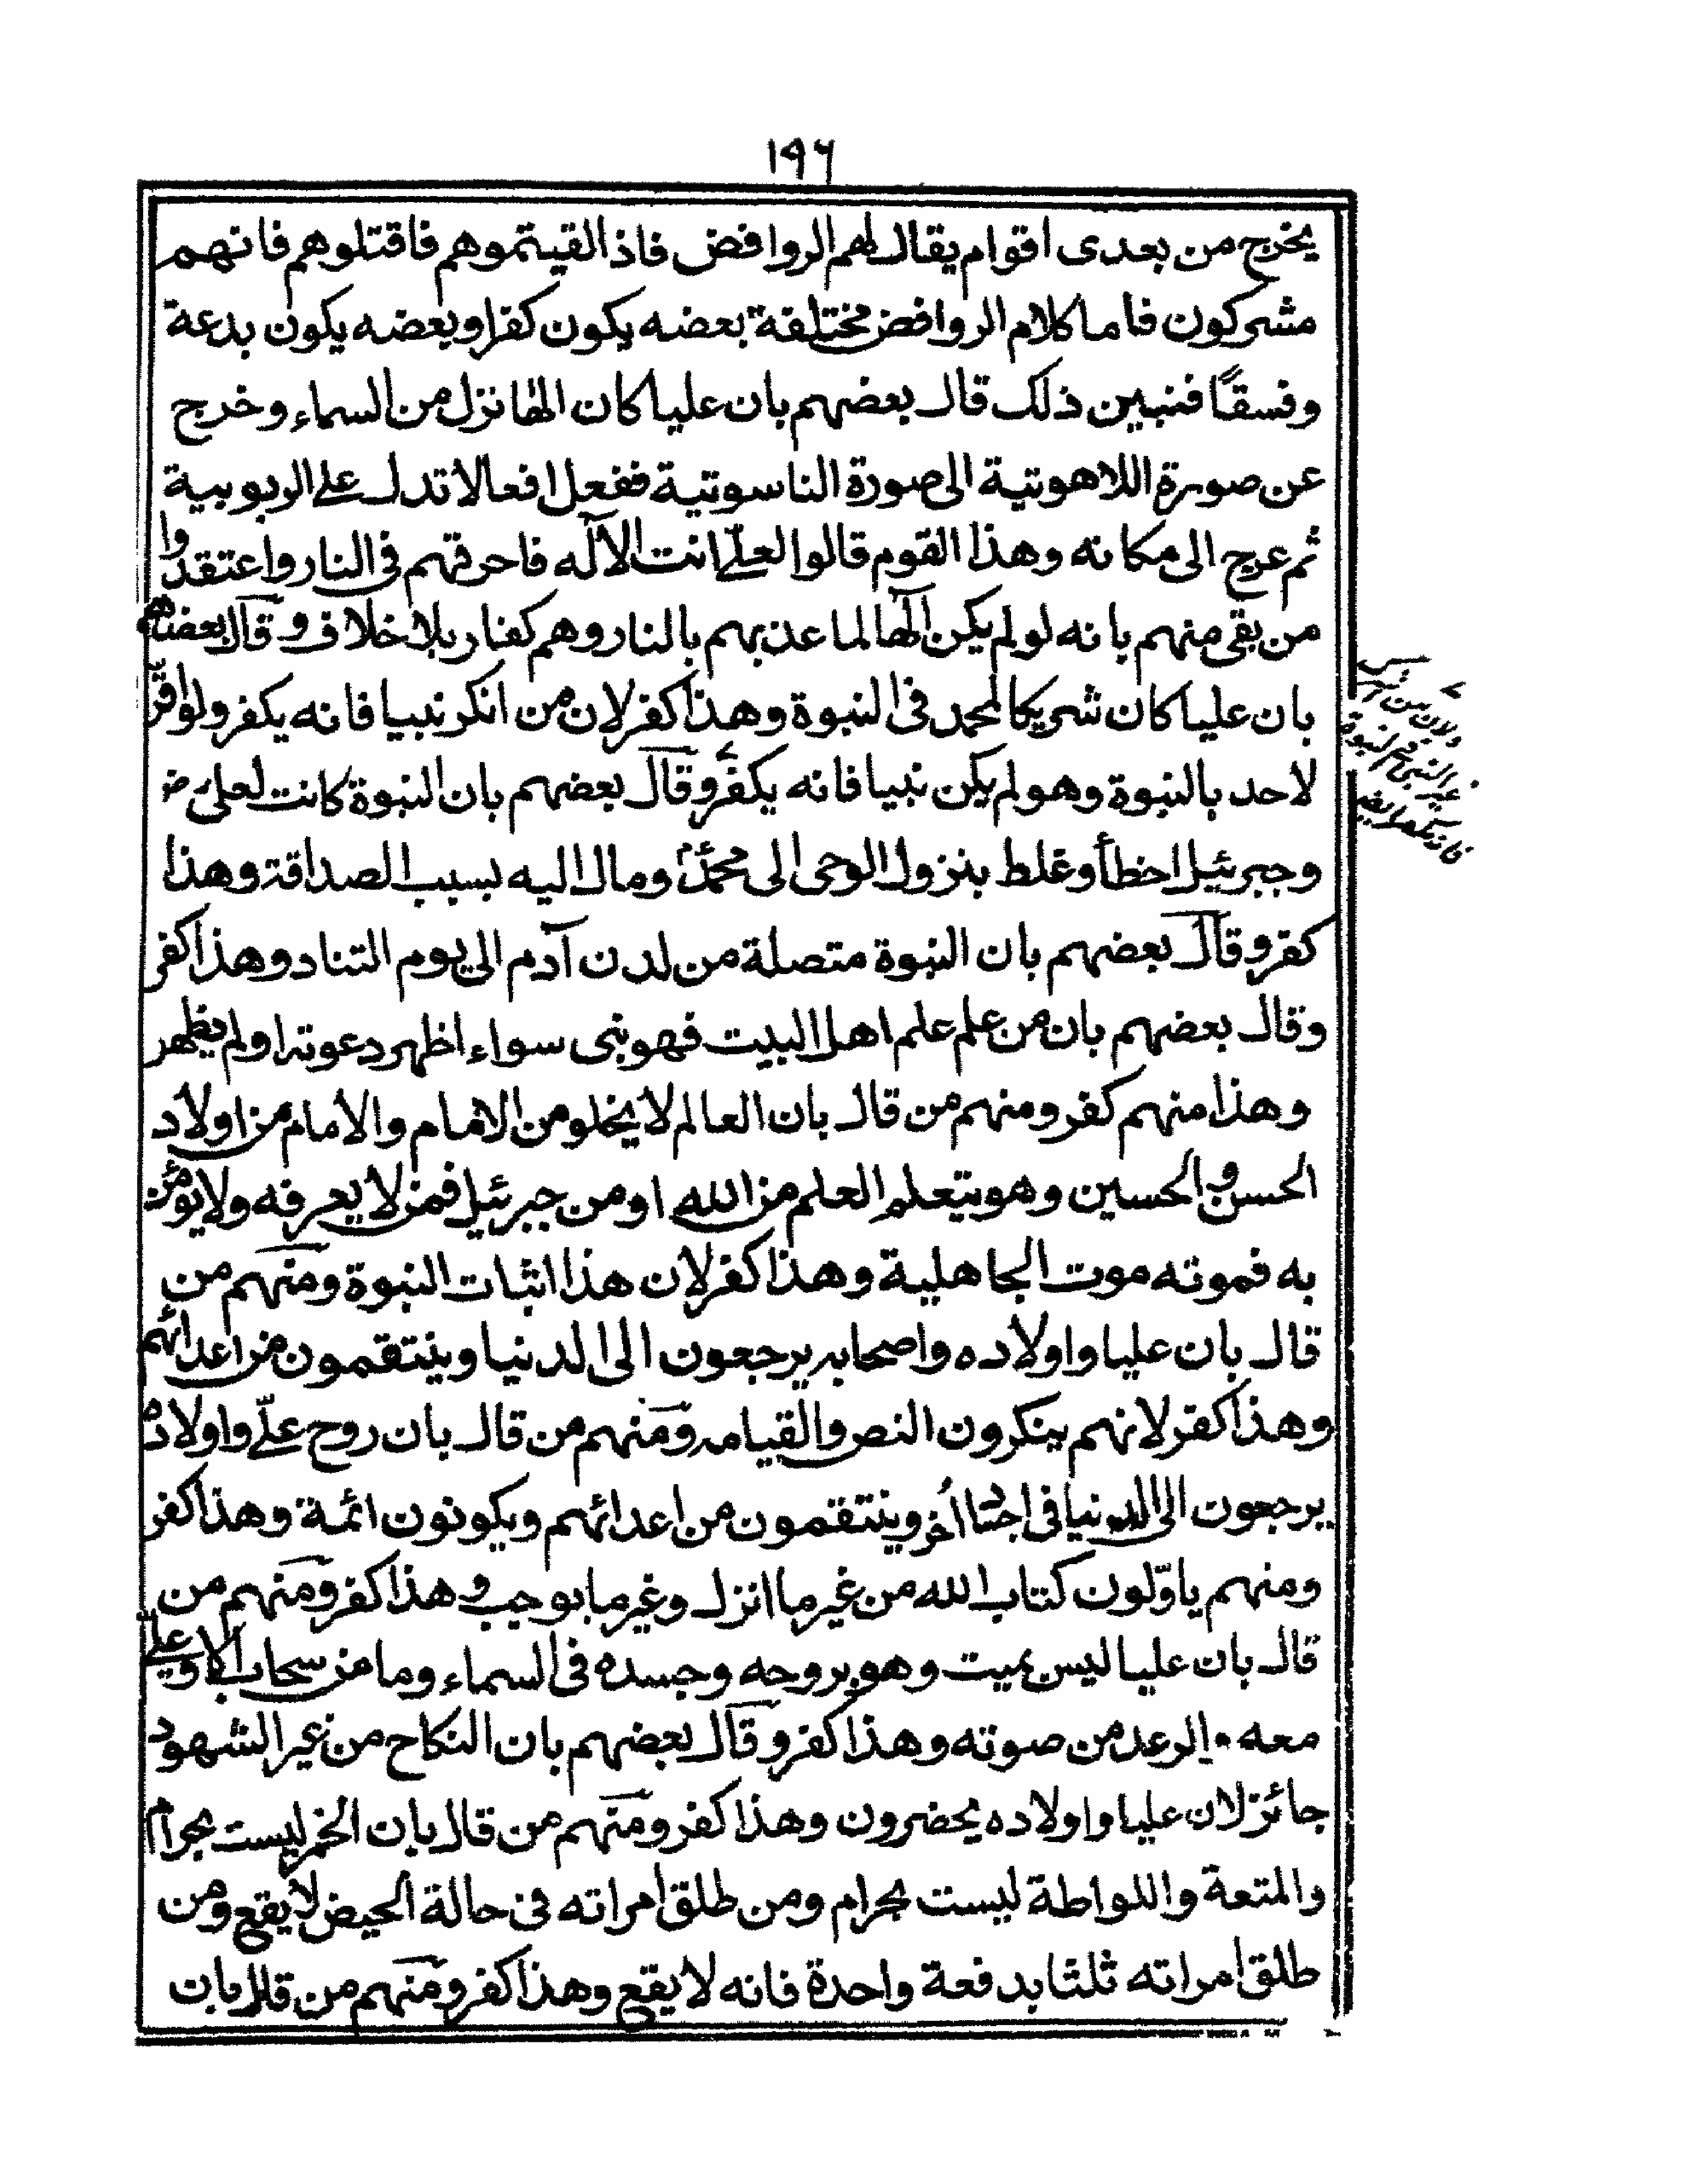 ١٩٦
يخرج من بعدى اقوام يقال لهم الروافض فاذا لقيتموهم فاقتلوهم فانهم
مشركون فاما كلام الروافض مختلفة بعضه يكون كفرا وبعضه يكون بدعة
وفسقًا فنبين ذلك قال بعضهم بان عليا كان الها نزل من السماء وخرج
عن صورة اللاهوتية الى صورة الناسوتية ففعل افعالا تدل على الربوبية
ثم عرج الى مكانه وهذا القوم قالوا لعلىّ انت الآله فاحرقهم فى النار واعتقدوا
من بقى منهم بانه لو لم يكن آلها لما عذبهم بالنار وهم كفار بلا خلاف وقال بعضهم
بان عليا كان شريكا لمحمد فى النبوة وهذا كفر لان من انكر نبيا فانه يكفر ولو اقرّ
لاحد بالنبوة وهو لم يكن نبيا فانه يكفر وقال بعضهم بان النبوة كانت لعلى رض
وجبرئيل اخطأ وغلط بنزول الوحى الى محمّد ومال اليه بسبب الصداقة وهذا
كفر وقال بعضهم بان النبوة متصلة من لدن آدم الى يوم التناد وهذا كفر
وقال بعضهم بان من علم علم اهل البيت فهو نبى سواء اظهر دعوته او لم يظهر
وهذا منهم كفر ومنهم من قال بان العالم لا يخلو من الامام والامام من اولاد
الحسن والحسين وهو يتعلم العلم من الله او من جبرئيل فمن لا يعرفه ولا يؤمن
به فموته موت الجاهلية وهذا كفر لان هذا اثبات النبوة ومنهم من
قال بان عليا واولاده واصحابه يرجعون الى الدنيا وينتقمون من اعدائهم
وهذا كفر لانهم ينكرون النص والقيامه ومنهم من قال بان روح علىّ واولاده
يرجعون الى الدنيا فى اجساد اُخر وينتقمون من اعدائهم ويكونون ائمة وهذا كفر
ومنهم ياوّلون كتاب الله من غير ما انزل وغير ما بوجب وهذا كفر ومنهم من
قال بان عليا ليس بميت وهو بروحه وجسده فى السماء وما من سحاب الا وعلىّ
معه والرعد من صوته وهذا كفر وقال بعضهم بان النكاح من غير الشهود
جائز لان عليا واولاده يحضرون وهذا كفر ومنهم من قال بان الخمر ليست بحرام
والمتعة واللواطة ليست بحرام ومن طلق امراته فى حالة الحيض لا يقع ومن
طلق امراته ثلثا بدفعة واحدة فانه لا يقع وهذا كفر ومنهم من قال بان
ولان من
غير النبى فى النبوة
فانه يكفر ايضا